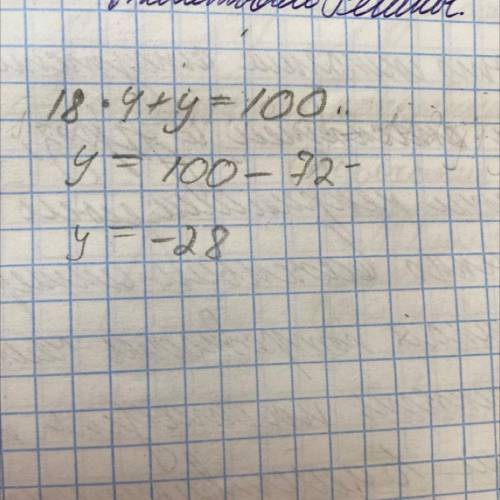 18 · 4 + y = 100
y = 100 - 72
y = -28